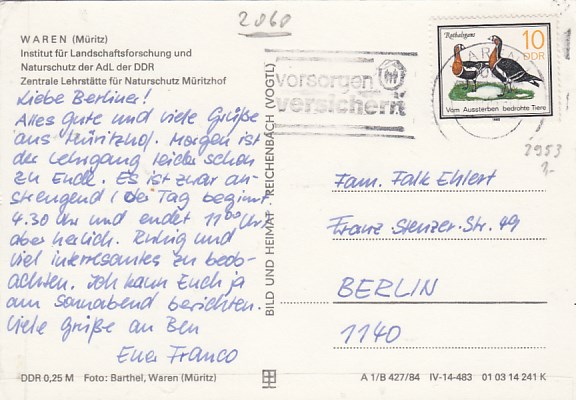 2060
WAREN (Müritz)
Institut für Landschaftsforschung und
Naturschutz der AdL der DDR
Zentrale Lehrstätte für Naturschutz Müritzhof
Liebe Berliner!
Alles gute und viele Grüße
aus Müritzhof. Morgen ist
der Lehrgang leider schon
zu Ende. Es ist zwar an-
strengend (der Tag beginnt
4.30 Uhr und endet 11⁰⁰ Uhr)
aber herlich. Ruhig und
viel interresantes zu beob-
achten. Ich kann Euch ja
am Sonnabend berichten.
Viele Grüße an Ben
Euer Franco
DDR 0,25 M Foto: Barthel, Waren (Müritz)
BILD UND HEIMAT · REICHENBACH (VOGTL)
vorsorgen
versichern
WAREN
Rothalsgans
10
DDR
Vom Aussterben bedrohte Tiere
1985
2953
Fam. Falk Ehlert
Franz-Stenzer-Str. 49
BERLIN
1140
A 1/B 427/84 IV-14-483 01 03 14 241 K